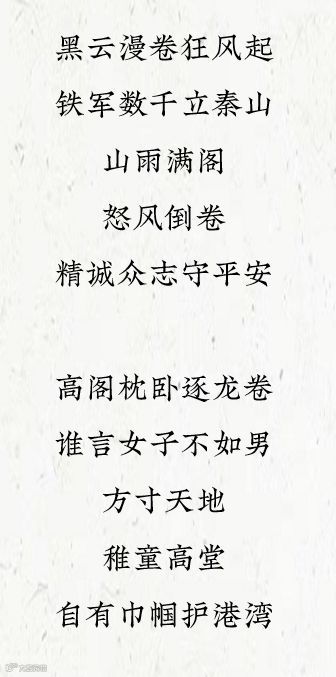 黑云漫卷狂风起
铁军数千立秦山
山雨满阁
怒风倒卷
精诚众志守平安
高阁枕卧逐龙卷
谁言女子不如男
方寸天地
稚童高堂
自有巾帼护港湾